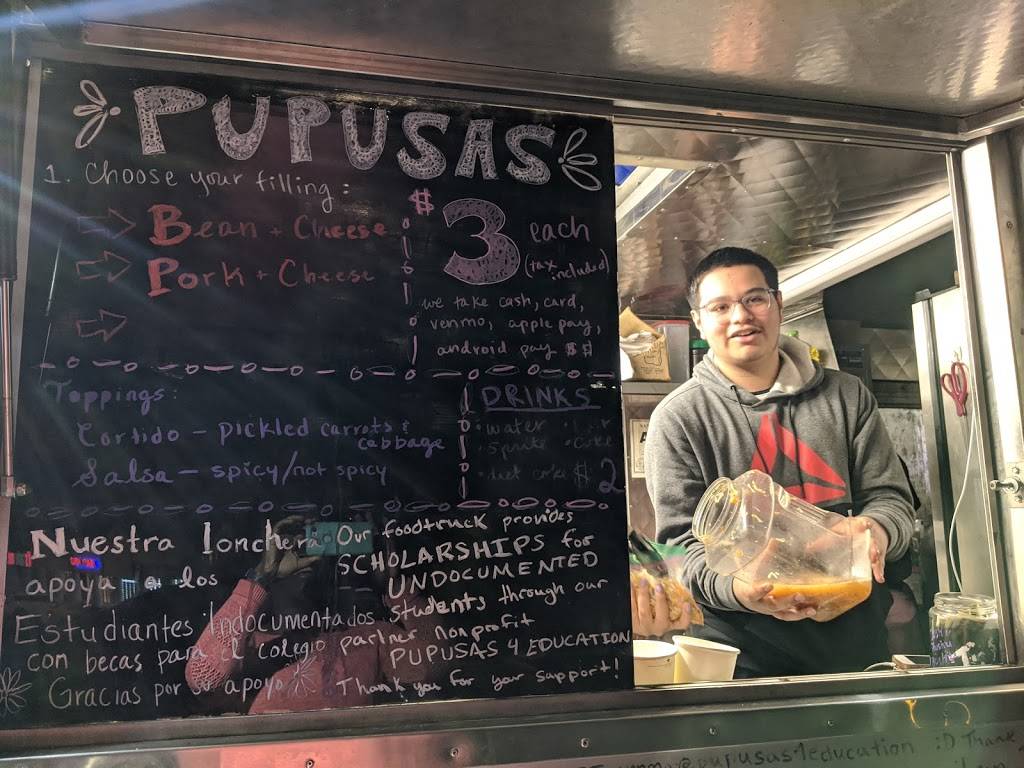 PUPUSAS
1. Choose your filling:
Bean + Cheese
Pork + Cheese
$3 each
(tax included)
we take cash, card,
venmo, apple pay,
android pay $$
Toppings:
Cortido - pickled carrots &
cabbage
Salsa - spicy/not spicy
DRINKS
• water
• Sprite • Coke
• diet coke $2
Nuestra lonchera
apoya a los
Estudiantes Indocumentados
con becas para el colegio
Gracias por su apoyo
Our foodtruck provides
SCHOLARSHIPS for
UNDOCUMENTED
students through our
partner nonprofit
PUPUSAS 4 EDUCATION
Thank you for your support!
@pupusas4education :D Thank